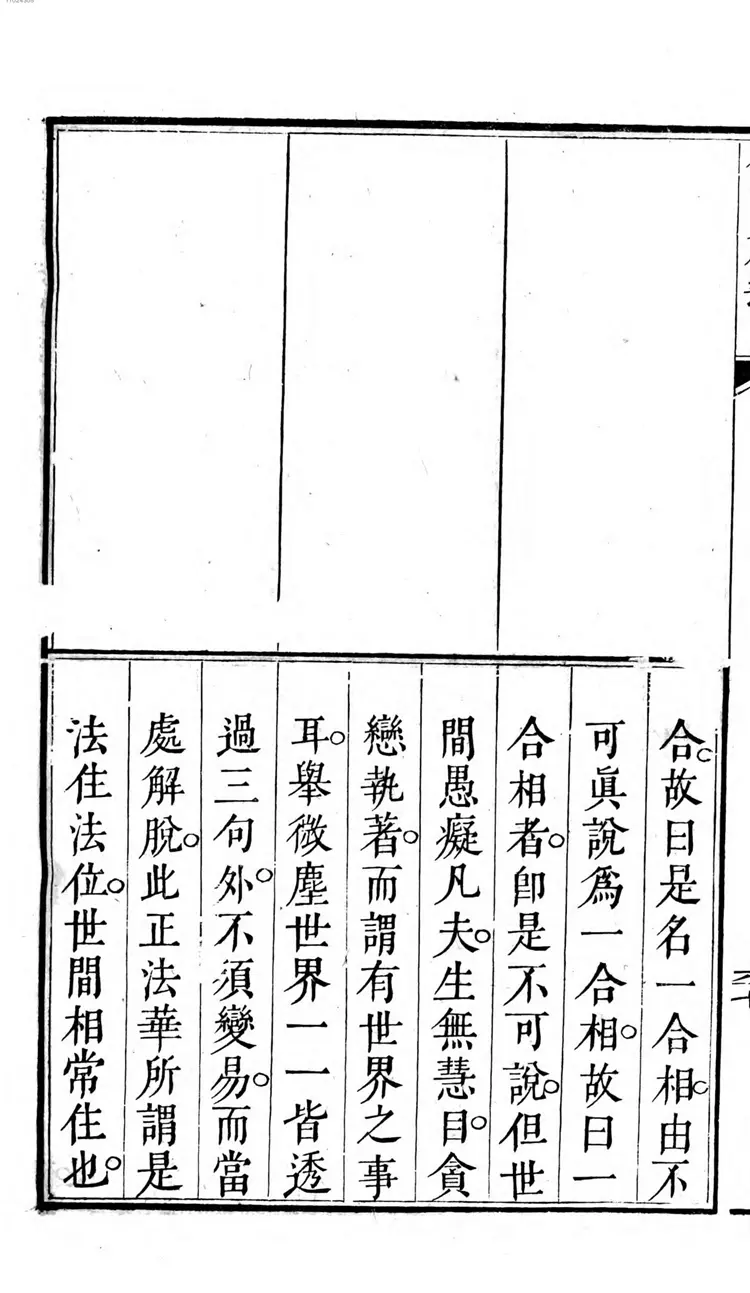 合。故曰是名一合相。由不
可眞說爲一合相。故曰一
合相者。卽是不可說。但世
間愚癡凡夫。生無慧目。貪
戀執著。而謂有世界之事
耳。舉微塵世界一一皆透
過三句外。不須變易。而當
處解脫。此正法華所謂是
法住法位。世間相常住也。